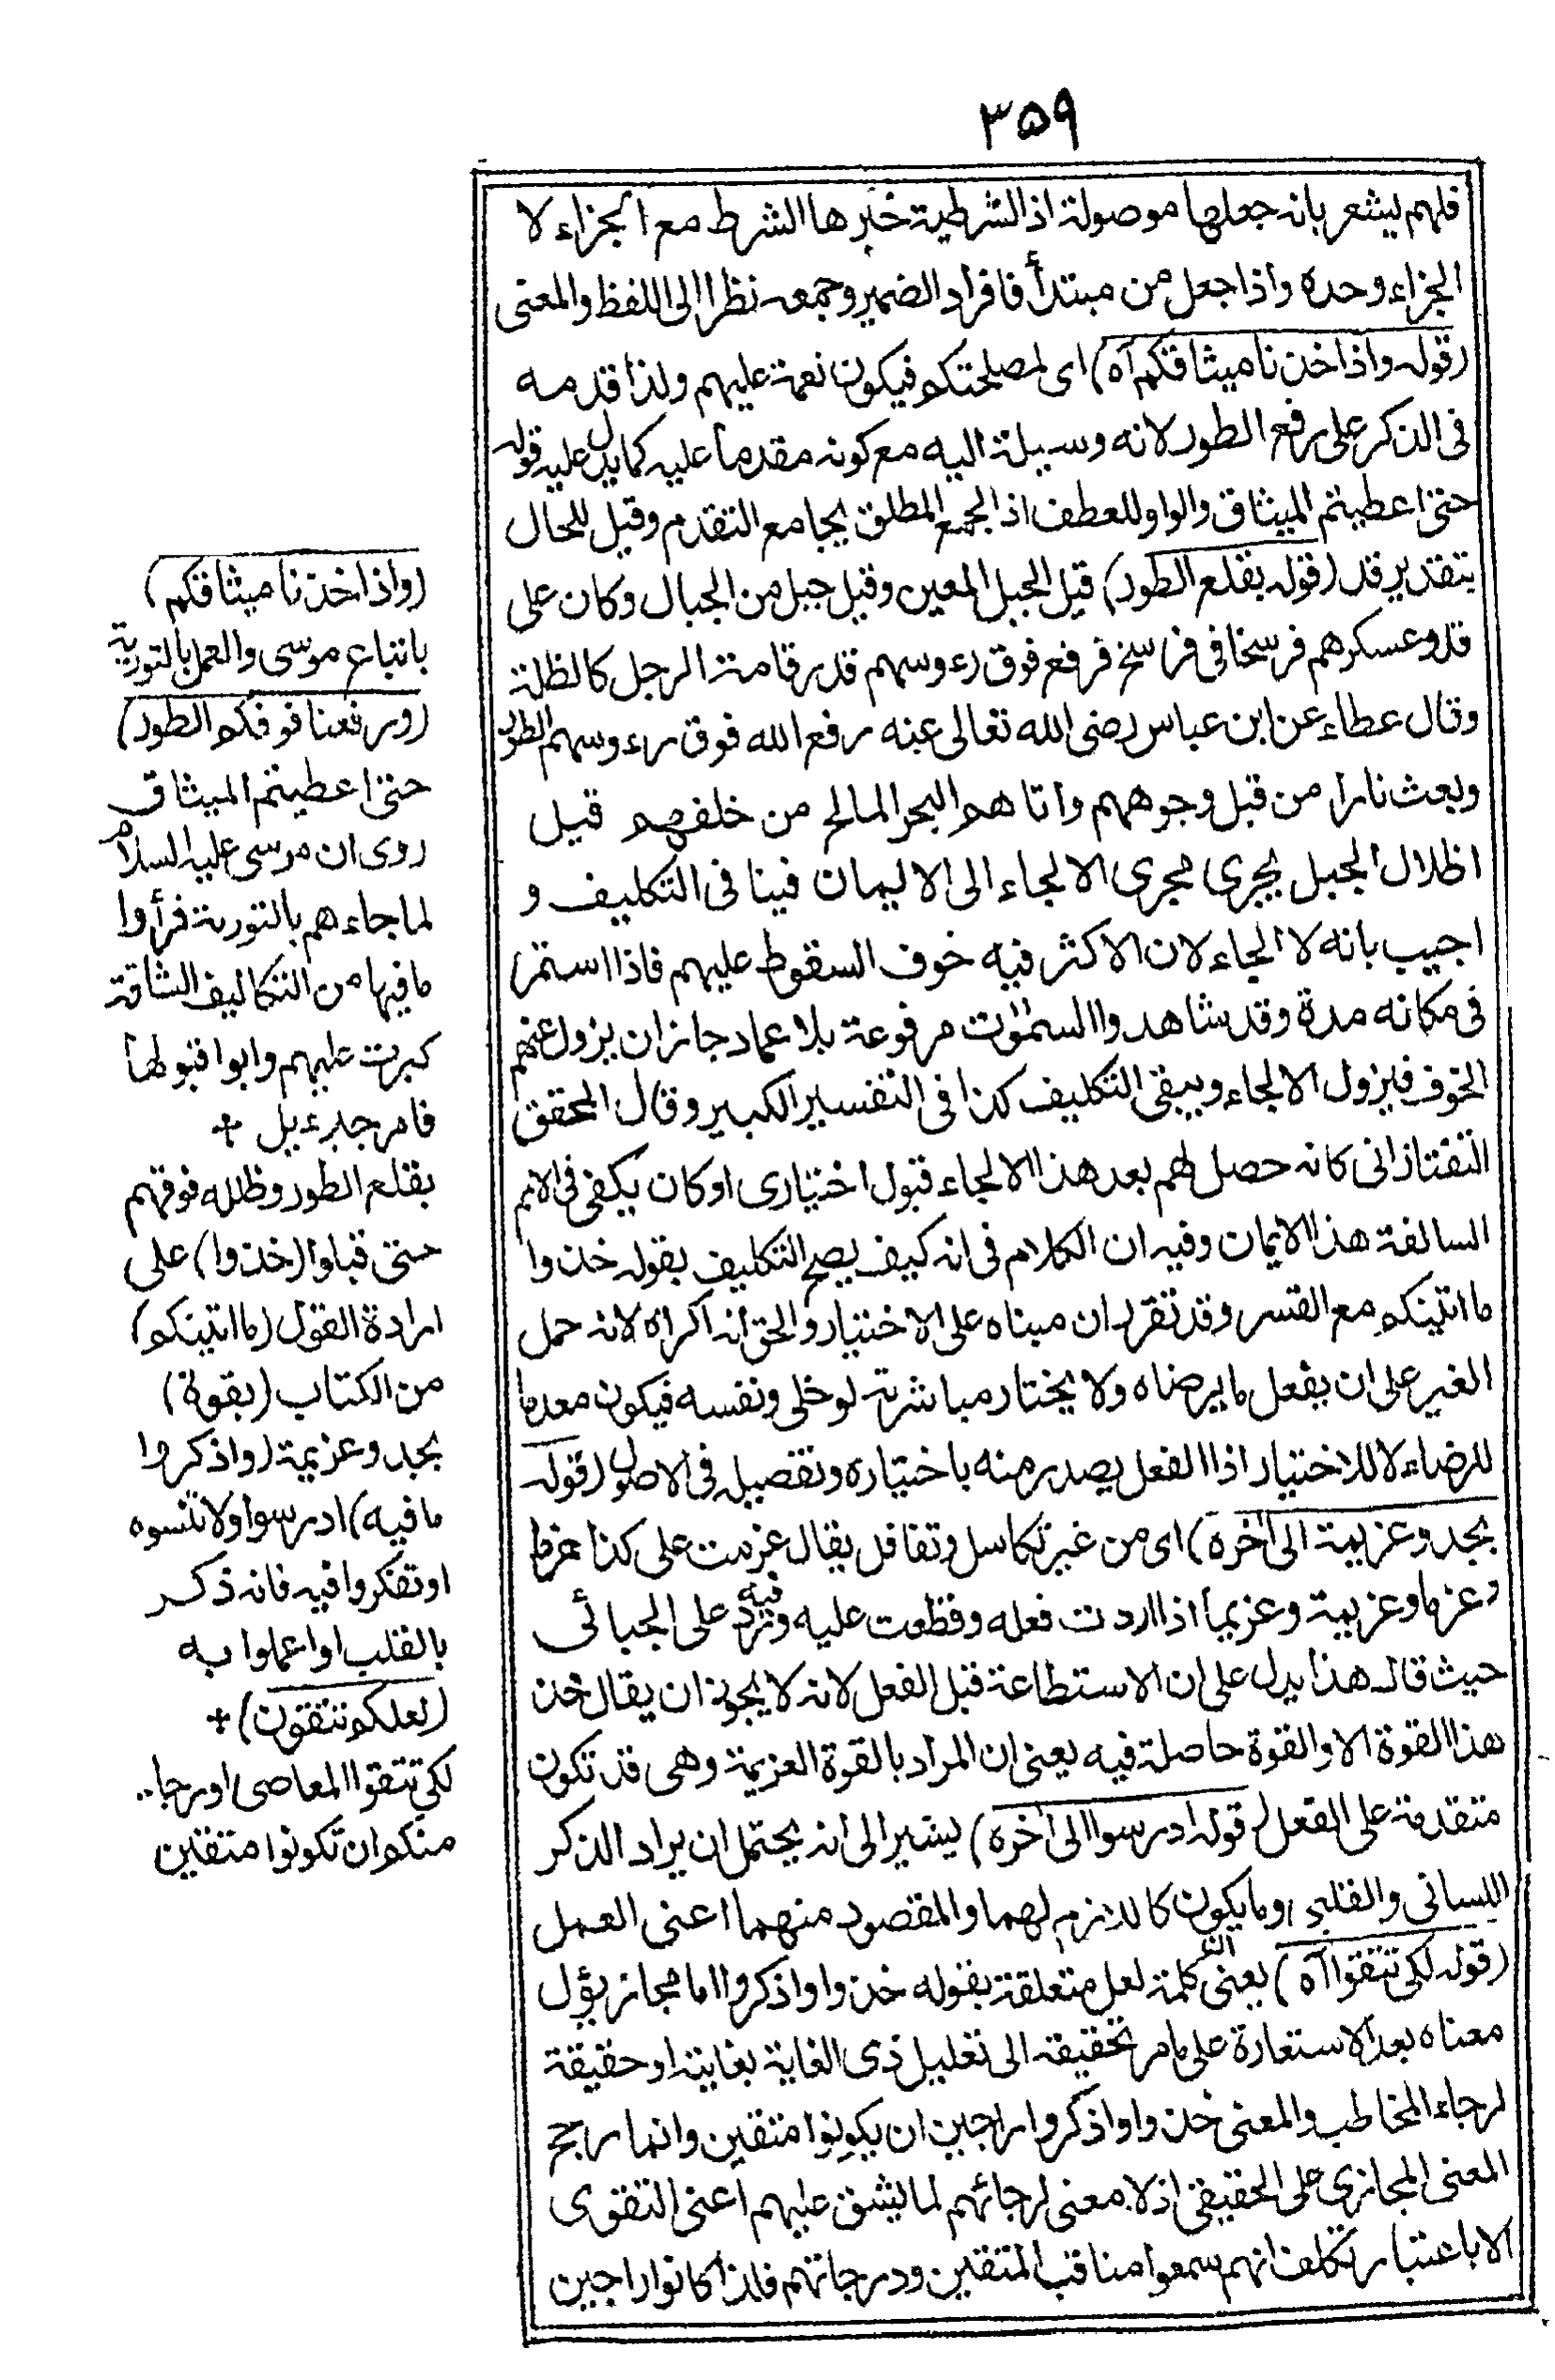 ۳۵۹
فلهم يشعر بانه جعلها موصولة اذ الشرطية خبرها الشرط مع الجزاء لا
الجزاء وحده واذا جعل من مبتدأ فافراد الضمير وجمعه نظرا الى اللفظ والمعنى
(قوله واذ اخذنا ميثاقكم آه) اى لمصلحتكم فيكون نعمة عليهم ولذا قدمه
فى الذكر على رفع الطور لانه وسيلة اليه مع كونه مقدما عليه كما يدل عليه قوله
حتى اعطيتم الميثاق والواو للعطف اذ الجمع المطلق يجامع التقدم وقيل للحال
بتقدير قد (قوله بقلع الطور) قيل الجبل المعين وقيل جبل من الجبال وكان على
قدر عسكرهم فرسخا فى فراسخ فرفع فوق رءوسهم قدر قامة الرجل كالظلة
وقال عطاء عن ابن عباس رضى الله تعالى عنه رفع الله فوق رءوسهم الطور
وبعث نارا من قبل وجوههم واتاهم البحر المالح من خلفهم قيل
اظلال الجبل يجرى مجرى الالجاء الى الايمان فينافى التكليف و
اجيب بانه لا الجاء لان الاكثر فيه خوف السقوط عليهم فاذا استمر
فى مكانه مدة وقد شاهدوا السموات مرفوعة بلا عماد جاز ان يزول عنهم
الخوف فيزول الالجاء ويبقى التكليف كذا فى التفسير الكبير وقال المحقق
التفتازانى كانه حصل لهم بعد هذا الالجاء قبول اختيارى او كان يكفى فى الامم
السالفة هذا الايمان وفيه ان الكلام فى انه كيف يصح التكليف بقوله خذوا
ما اتينكم مع القسر وقد تقرر ان مبناه على الاختيار والحق انه اكراه لانه حمل
الغير على ان يفعل ما يرضاه ولا يختار مباشرته لو خلى ونفسه فيكون معدما
للرضاء لا للاختيار اذ الفعل يصدر منه باختياره وتفصيله فى الاصول (قوله
بجد وعزيمة الى اخره) اى من غير تكاسل وتغافل يقال عزمت على كذا عزما
وعزما وعزيمة وعزيما اذا اردت فعله وقطعت عليه وفيه رد على الجبائى
حيث قال هذا يدل على ان الاستطاعة قبل الفعل لانه لا يجوز ان يقال خذ
هذا القوة الا والقوة حاصلة فيه يعنى ان المراد بالقوة العزيمة وهى قد تكون
متقدمة على الفعل (قوله ادرسوا الى اخره) يشير الى انه يحتمل ان يراد الذكر
اللسانى والقلبى او ما يكون كاللازم لهما والمقصود منهما اعنى العمل
(قوله لكى تتقوا آه) يعنى كلمة لعل متعلقة بقوله خذوا واذكروا اما مجاز يؤل
معناه بعد الاستعارة على ما مر تحقيقه الى تعليل ذى الغاية بغايته او حقيقة
لرجاء المخاطب والمعنى خذوا واذكروا راجين ان يكونوا متقين وانما رجح
المعنى المجازى على الحقيقى اذ لا معنى لرجائهم لما يشق عليهم اعنى التقوى
الا باعتبار تكلف انهم سمعوا مناقب المتقين ودرجاتهم فلذا كانوا راجين
(واذ اخذنا ميثاقكم)
باتباع موسى والعمل بالتورية
(ورفعنا فوقكم الطور)
حتى اعطيتم الميثاق
روى ان موسى عليه السلام
لما جاءهم بالتورية فرأوا
ما فيها من التكاليف الشاقة
كبرت عليهم وابوا قبولها
فامر جبرءيل +
بقلع الطور وظلله فوقهم
حتى قبلوا (خذوا) على
ارادة القول (ما اتينكم)
من الكتاب (بقوة)
بجد وعزيمة (واذكروا
ما فيه) ادرسوا ولا تنسوه
او تفكروا فيه فانه ذكر
بالقلب او اعملوا به
(لعلكم تتقون) +
لكى تتقوا المعاصى او رجاء
منكم ان تكونوا متقين